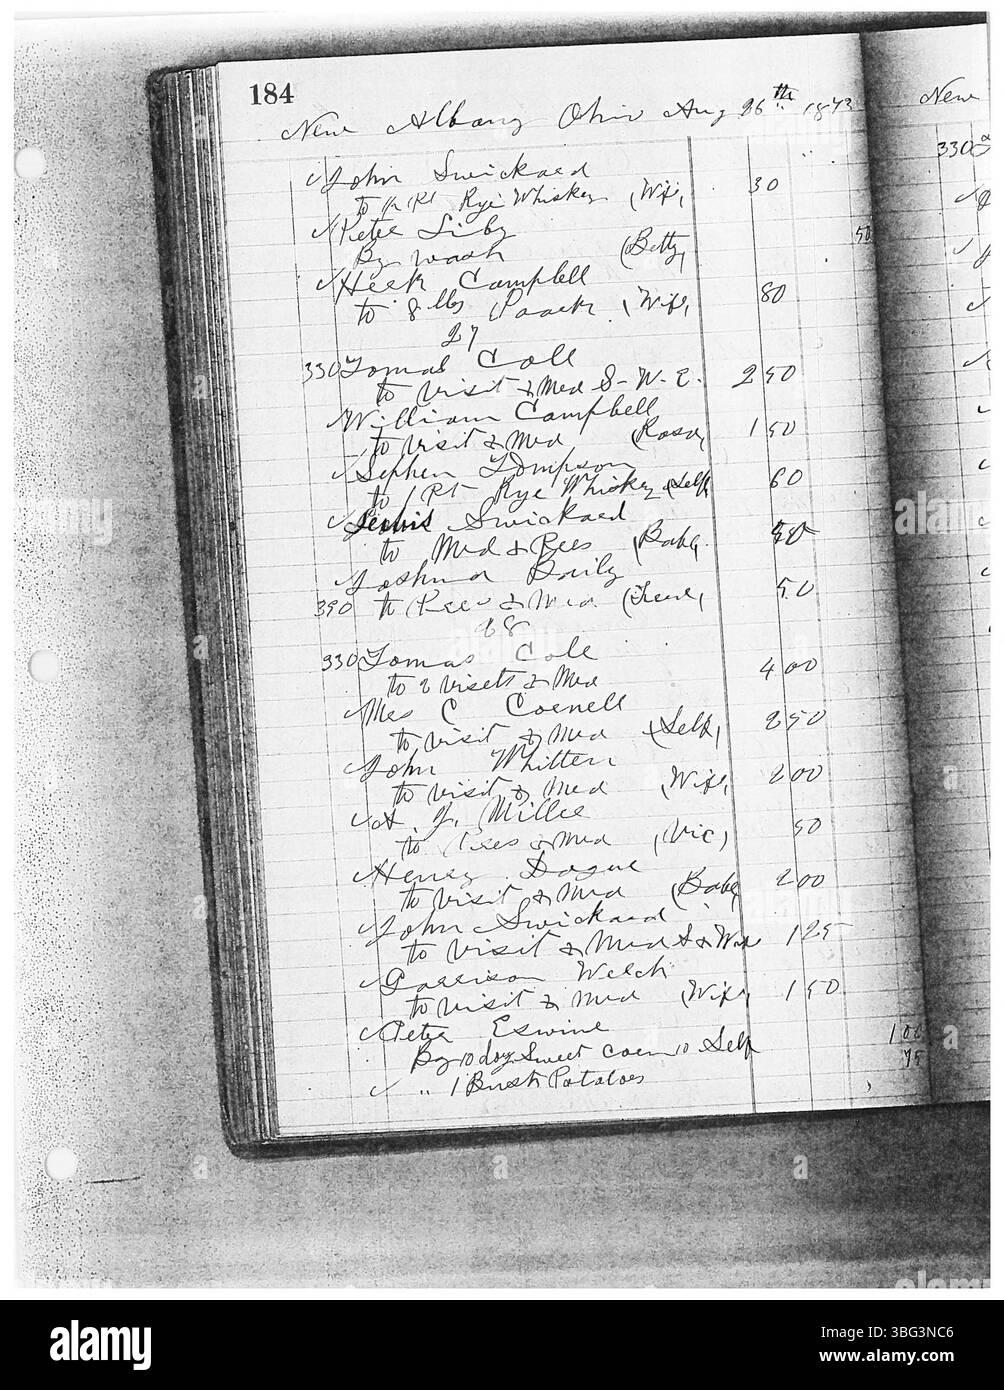 184
New Albany Ohio Aug 26th 1873
John Swickard
to Pt Rye Whiskey (Wife) 30
Peter Siby
By wash (Betty) 50
Heck Campbell
to 8 lbs (Wife) 80
27
330 Tomas Cole
to Visit & Med S-W.E. 2 50
William Campbell
to Visit & Med (Rosa) 1 50
Stephen Tompson
to 1 Pt Rye Whiskey (Self) 60
Lewis Swickard
to Med & Rees (Babe) 50
Joshua Baily
390 to & Med 50
28
330 Tomas Cole
to 2 Visets & Med 4 00
Mrs C Cornell
to Visit & Med (Self) 2 50
John Whitten
to Visit & Med (Wife) 2 00
A. J. Miller
to & Med (Vic) 50
Henry Dague
to Visit & Med (Babe) 2 00
John Swickard
to Visit & Med S & Wife 1 25
Garrison Welch
to Visit & Med (Wife) 1 50
Peter Eswine
By 10 doz Sweet Corn 10 Self 1 00
" 1 Bush Potatoes 75
New
330
alamy
Image ID: 3BG3NC6
www.alamy.com